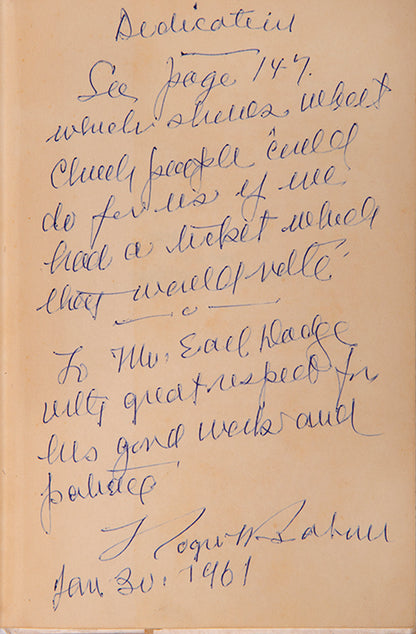 Dedication
See page 147.
which shows what
Church people could
do for us if we
had a ticket which
they would vote.
To Mr. Earl Dodge
with great respect for
his good work and
patience
Roger W. Babson
Jan. 30, 1961